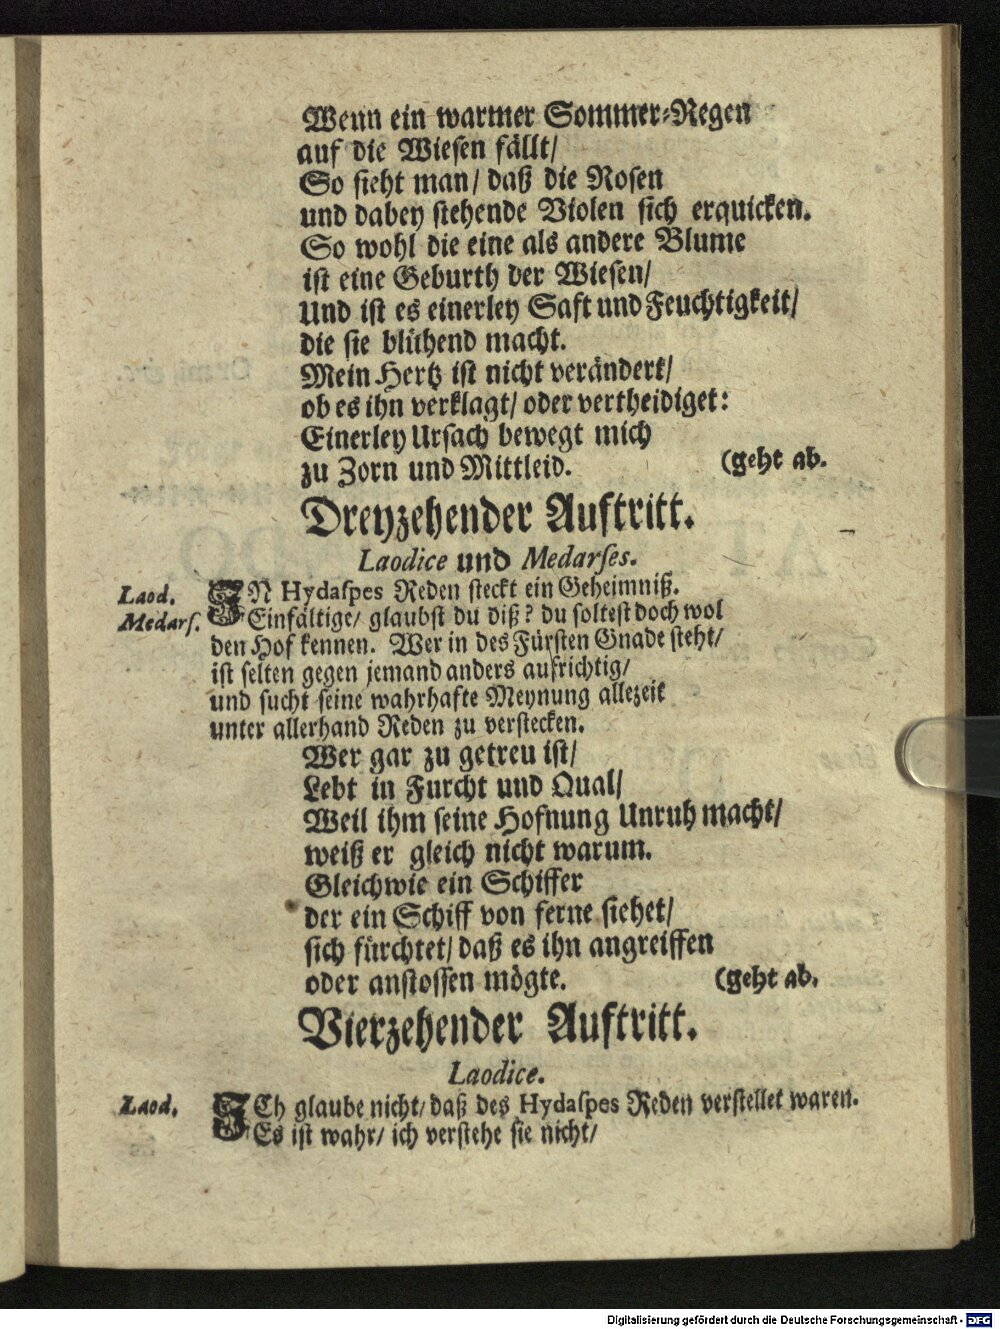 Wenn ein warmer Sommer-Regen
auf die Wiesen fällt/
So sieht man/ daß die Rosen
und dabey stehende Violen sich erquicken.
So wohl die eine als andere Blume
ist eine Geburth der Wiesen/
Und ist es einerley Saft und Feuchtigkeit/
die sie blühend macht.
Mein Hertz ist nicht verändert/
ob es ihn verklagt/ oder vertheidiget:
Einerley Ursach bewegt mich
zu Zorn und Mittleid. (geht ab.
Dreyzehender Auftritt.
Laodice und Medarses.
Laod. IN Hydaspes Reden steckt ein Geheimniß.
Medars. Einfältige/ glaubst du diß? du soltest doch wol
den Hof kennen. Wer in des Fürsten Gnade steht/
ist selten gegen jemand anders aufrichtig/
und sucht seine wahrhafte Meynung allezeit
unter allerhand Reden zu verstecken.
Wer gar zu getreu ist/
Lebt in Furcht und Qual/
Weil ihm seine Hofnung Unruh macht/
weiß er gleich nicht warum.
Gleichwie ein Schiffer
der ein Schiff von ferne siehet/
sich fürchtet/ daß es ihn angreiffen
oder anstossen mögte. (geht ab.
Vierzehender Auftritt.
Laodice.
Laod. ICh glaube nicht/ daß des Hydaspes Reden verstellet waren.
Es ist wahr/ ich verstehe sie nicht/
Digitalisierung gefördert durch die Deutsche Forschungsgemeinschaft - DFG